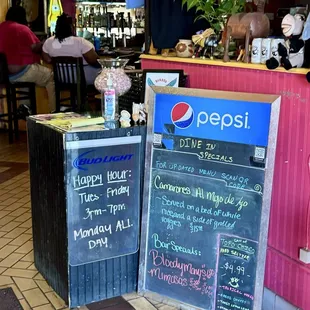 BUD LIGHT
HAPPY HOUR:
TUES - FRIDAY
3PM-7PM
MONDAY ALL
DAY
pepsi
DINE IN
SPECIALS
FOR UPDATED MENU SCAN QR
CODE
Camarones Al Mojo de Ajo
- Served on a bed of white
rice and a side of grilled
Bar Specials:
Bloody Mary's
Mimosas
$4.99